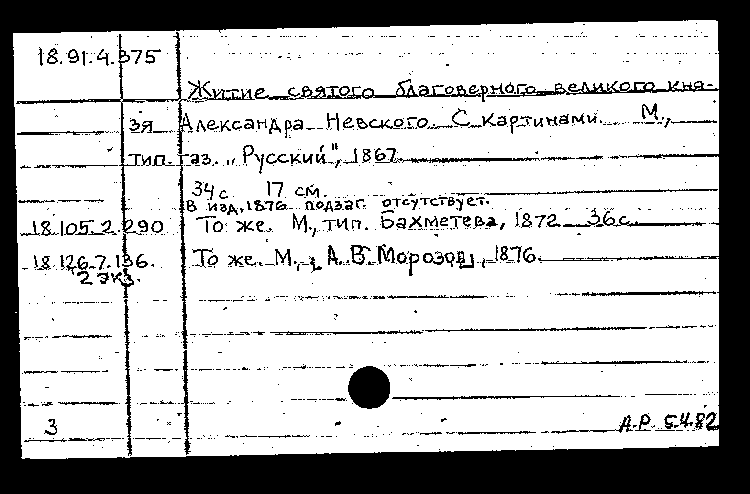 18.91.4.375
Житие святого благоверного великого кня-
зя Александра Невского. С картинами. М.,
тип. газ. „Русский", 1867.
34 с. 17 см.
В изд. 1876 подзаг. отсутствует.
18.105.2.290 То же. М., тип. Бахметева, 1872. 36 с.
18.126.7.136. То же. М., [А.В. Морозов], 1876.
2 экз.
3 А.Р. 5.4.82